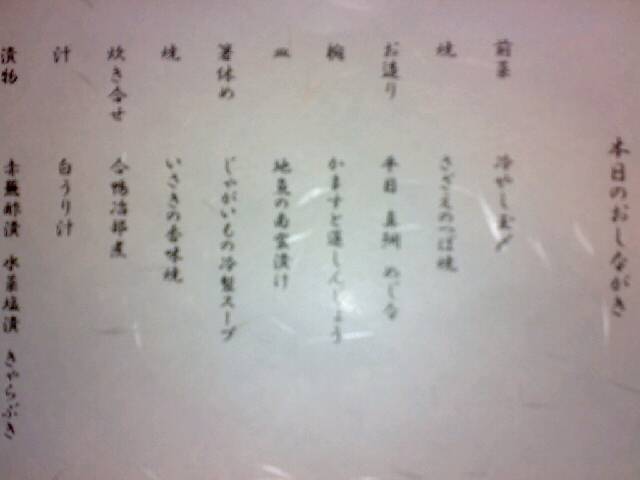 本日のおしながき
前菜 冷やし
焼 さざえのつぼ焼
お造り 平目 真鯛 めじな
椀 かますと蓮しんじょう
皿 地魚の南蛮漬け
箸休め じゃがいもの冷製スープ
焼 いさきの香味焼
炊き合せ 合鴨冶部煮
汁 白うり汁
漬物 赤蕪酢漬 水菜塩漬 きゃらぶき